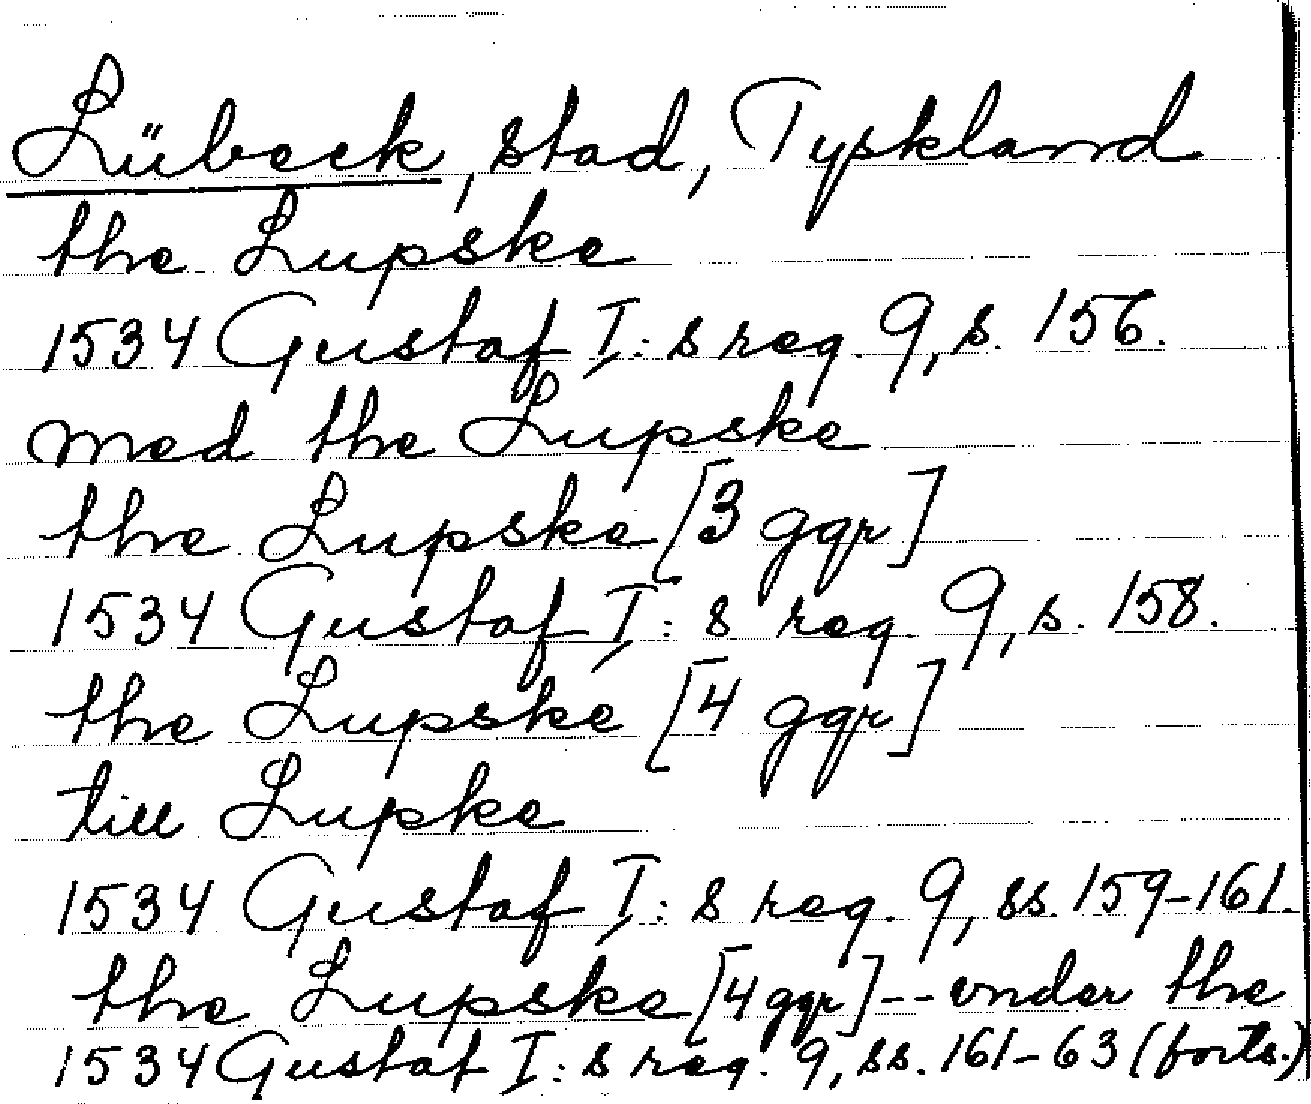 Lübeck, stad, Tyskland
the Lupske
1534 Gustaf I:s reg. 9, s. 156.
med the Lupske
the Lupske [3 ggr]
1534 Gustaf I:s reg. 9, s. 158.
the Lupske [4 ggr]
till Lupke
1534 Gustaf I:s reg. 9, ss. 159-161.
the Lupske [4 ggr] -- vnder the
1534 Gustaf I:s reg. 9, ss. 161-63 (forts.)